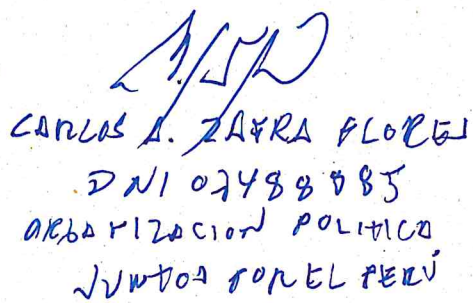 CARLOS A. ZAFRA FLORES
DNI 07488885
ORGANIZACION POLITICA
JUNTOS POR EL PERÚ